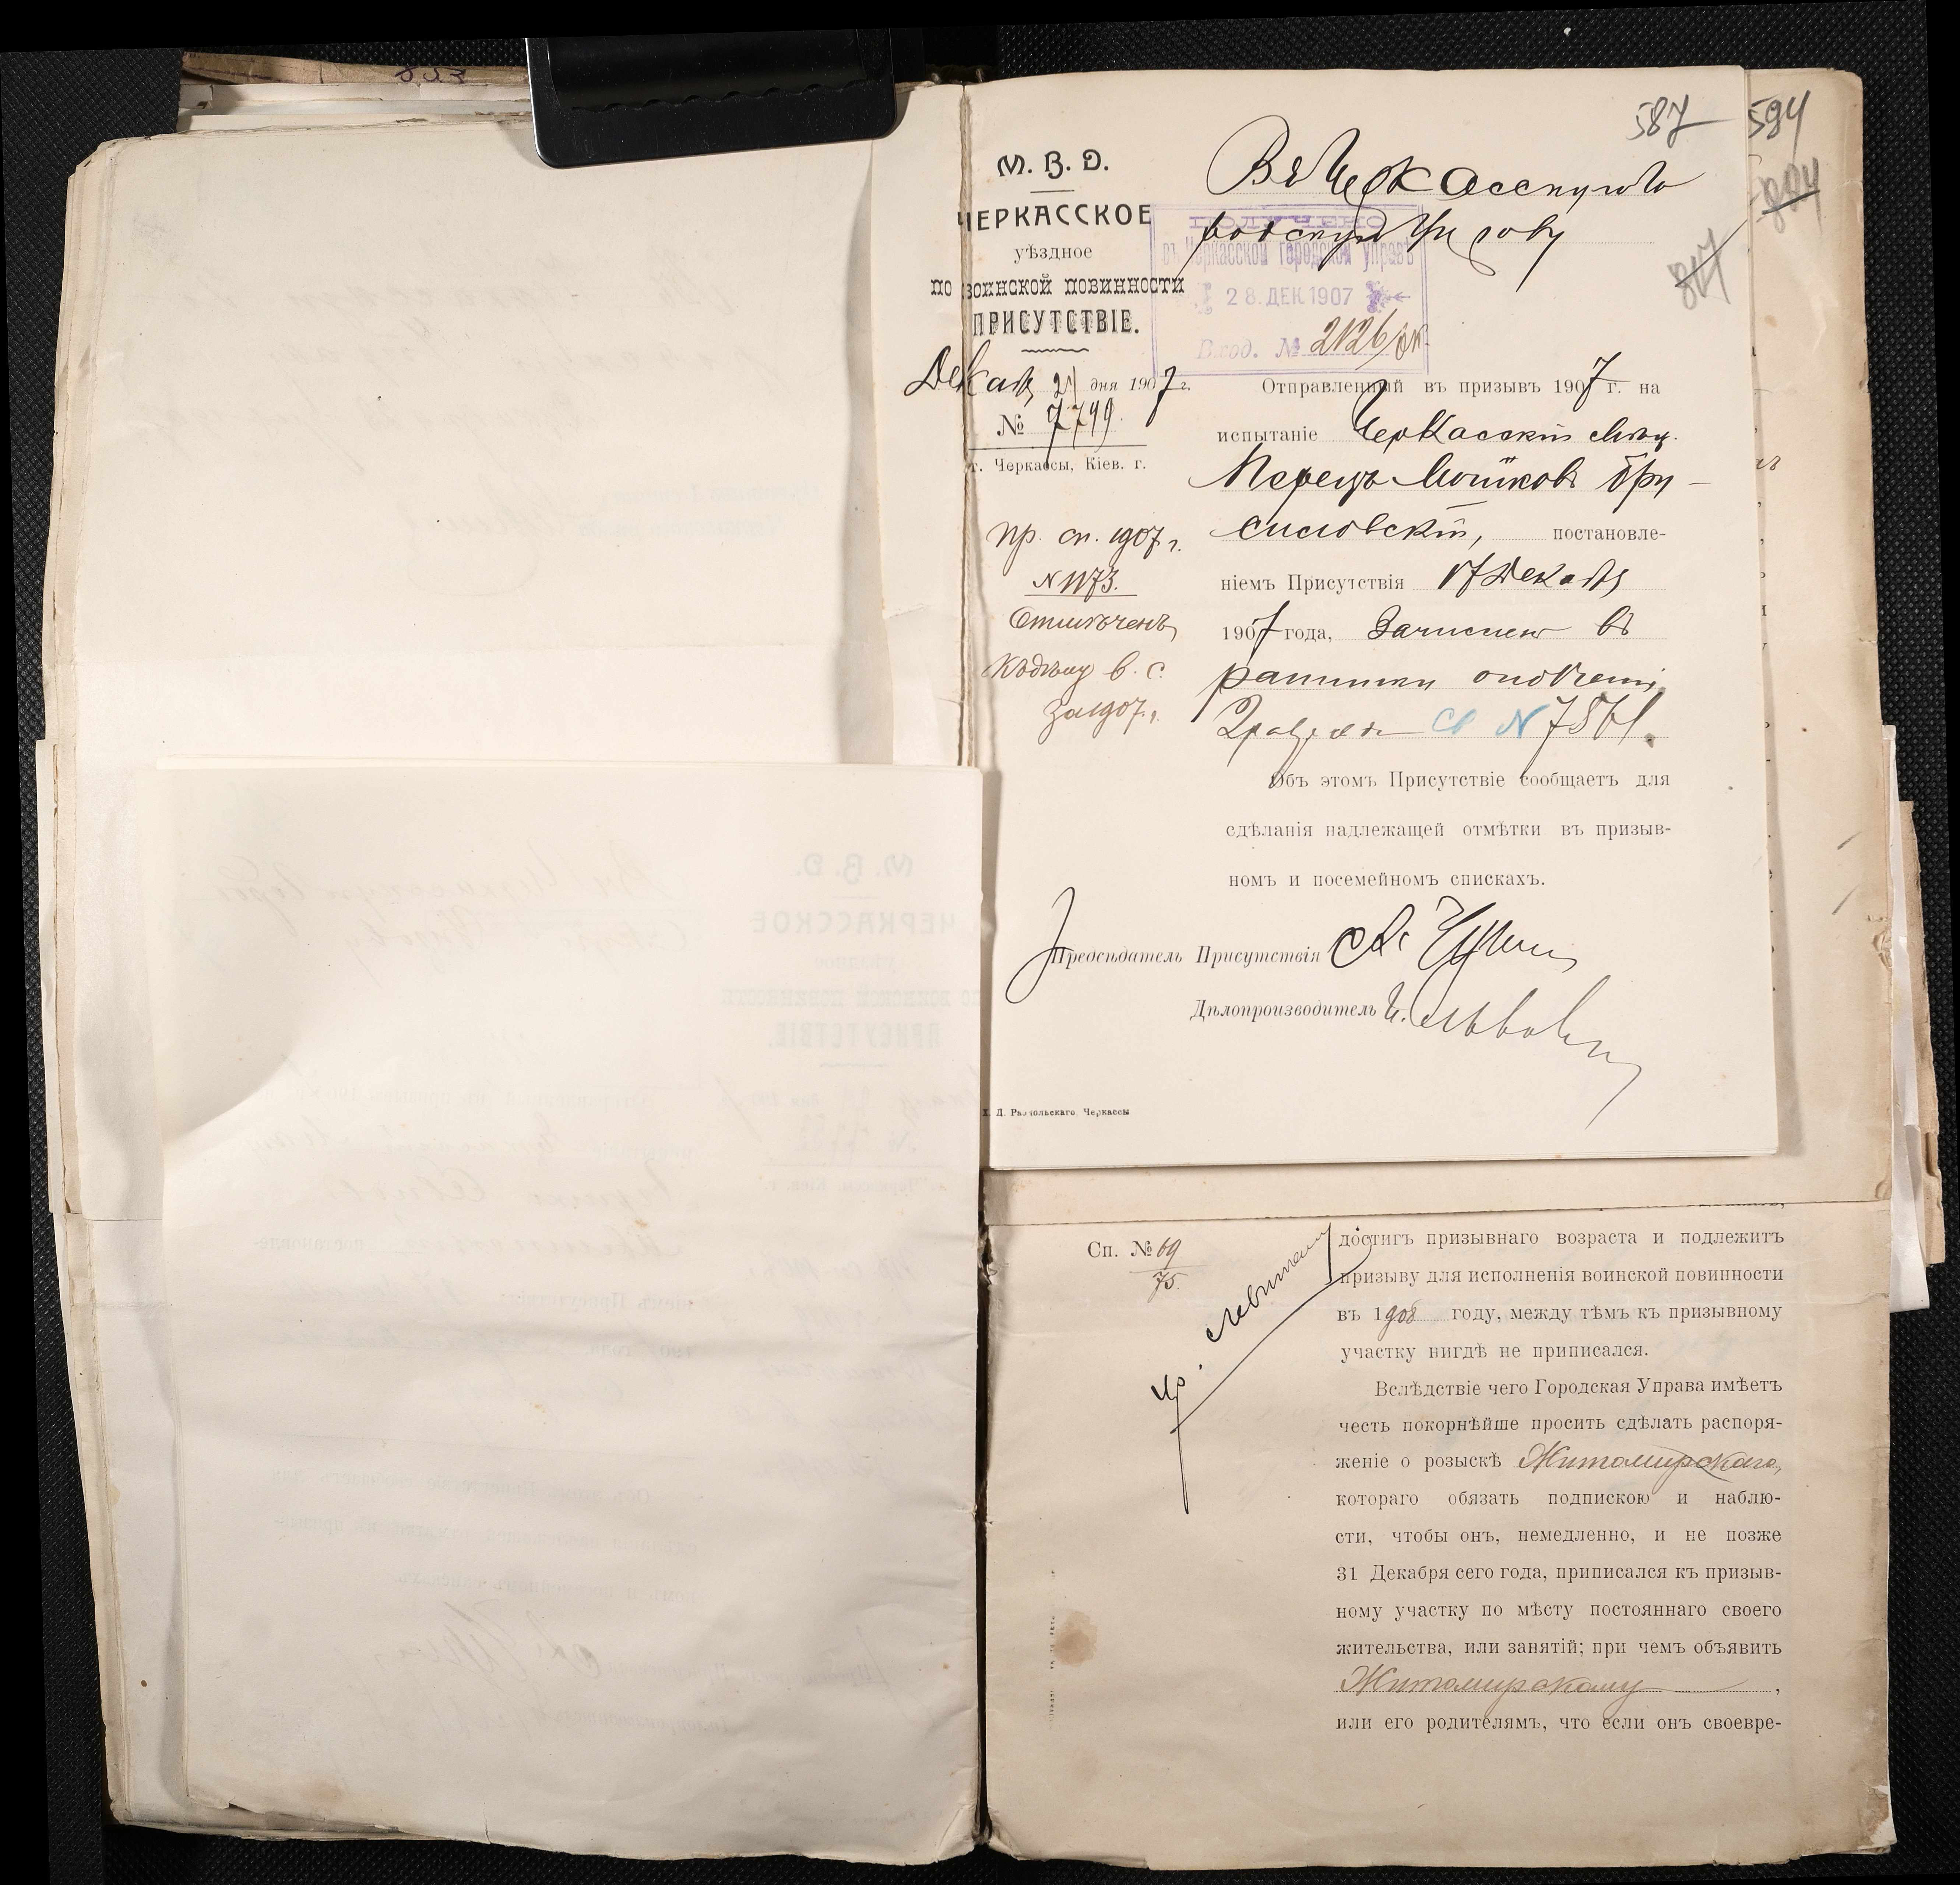 587
594
М. В. Д.
ЧЕРКАССКОЕ
уѣздное
по воинской повинности
ПРИСУТСТВІЕ.
Декаб. 21 дня 1907 г.
№ 7799.
г. Черкассы, Кіев. г.
Въ Черкасскую Го
родскую Управу
ПОЛУЧЕНО
въ Черкасской городской управѣ
28. ДЕК. 1907
Вход. № 2126
Отправленный въ призывъ 1907 г. на
испытаніе Черкасскій мѣщ.
Перецъ Мошковъ Бру-
силовскій, постановле-
ніемъ Присутствія 17 Декабря
1907 года, Зачислен въ
ратники ополченія
2 разряда св № 7561.
Объ этомъ Присутствіе сообщаетъ для
сдѣланія надлежащей отмѣтки въ призыв-
номъ и посемейномъ спискахъ.
пр. сп. 1907 г.
№ 1173.
Отмѣченъ
в. с.
за 1907 г.
Предсѣдатель Присутствія
Дѣлопроизводитель
Д. Раюпольскаго Черкассы
Сп. № 69
75.
достигъ призывнаго возраста и подлежитъ
призыву для исполненія воинской повинности
въ 1908 году, между тѣмъ къ призывному
участку нигдѣ не приписался.
Вслѣдствіе чего Городская Управа имѣетъ
честь покорнѣйше просить сдѣлать распоря-
женіе о розыскѣ Житомирскаго,
котораго обязать подпискою и наблю-
сти, чтобы онъ, немедленно, и не позже
31 Декабря сего года, приписался къ призыв-
ному участку по мѣсту постояннаго своего
жительства, или занятій; при чемъ объявить
Житомирскому ,
или его родителямъ, что если онъ своевре-